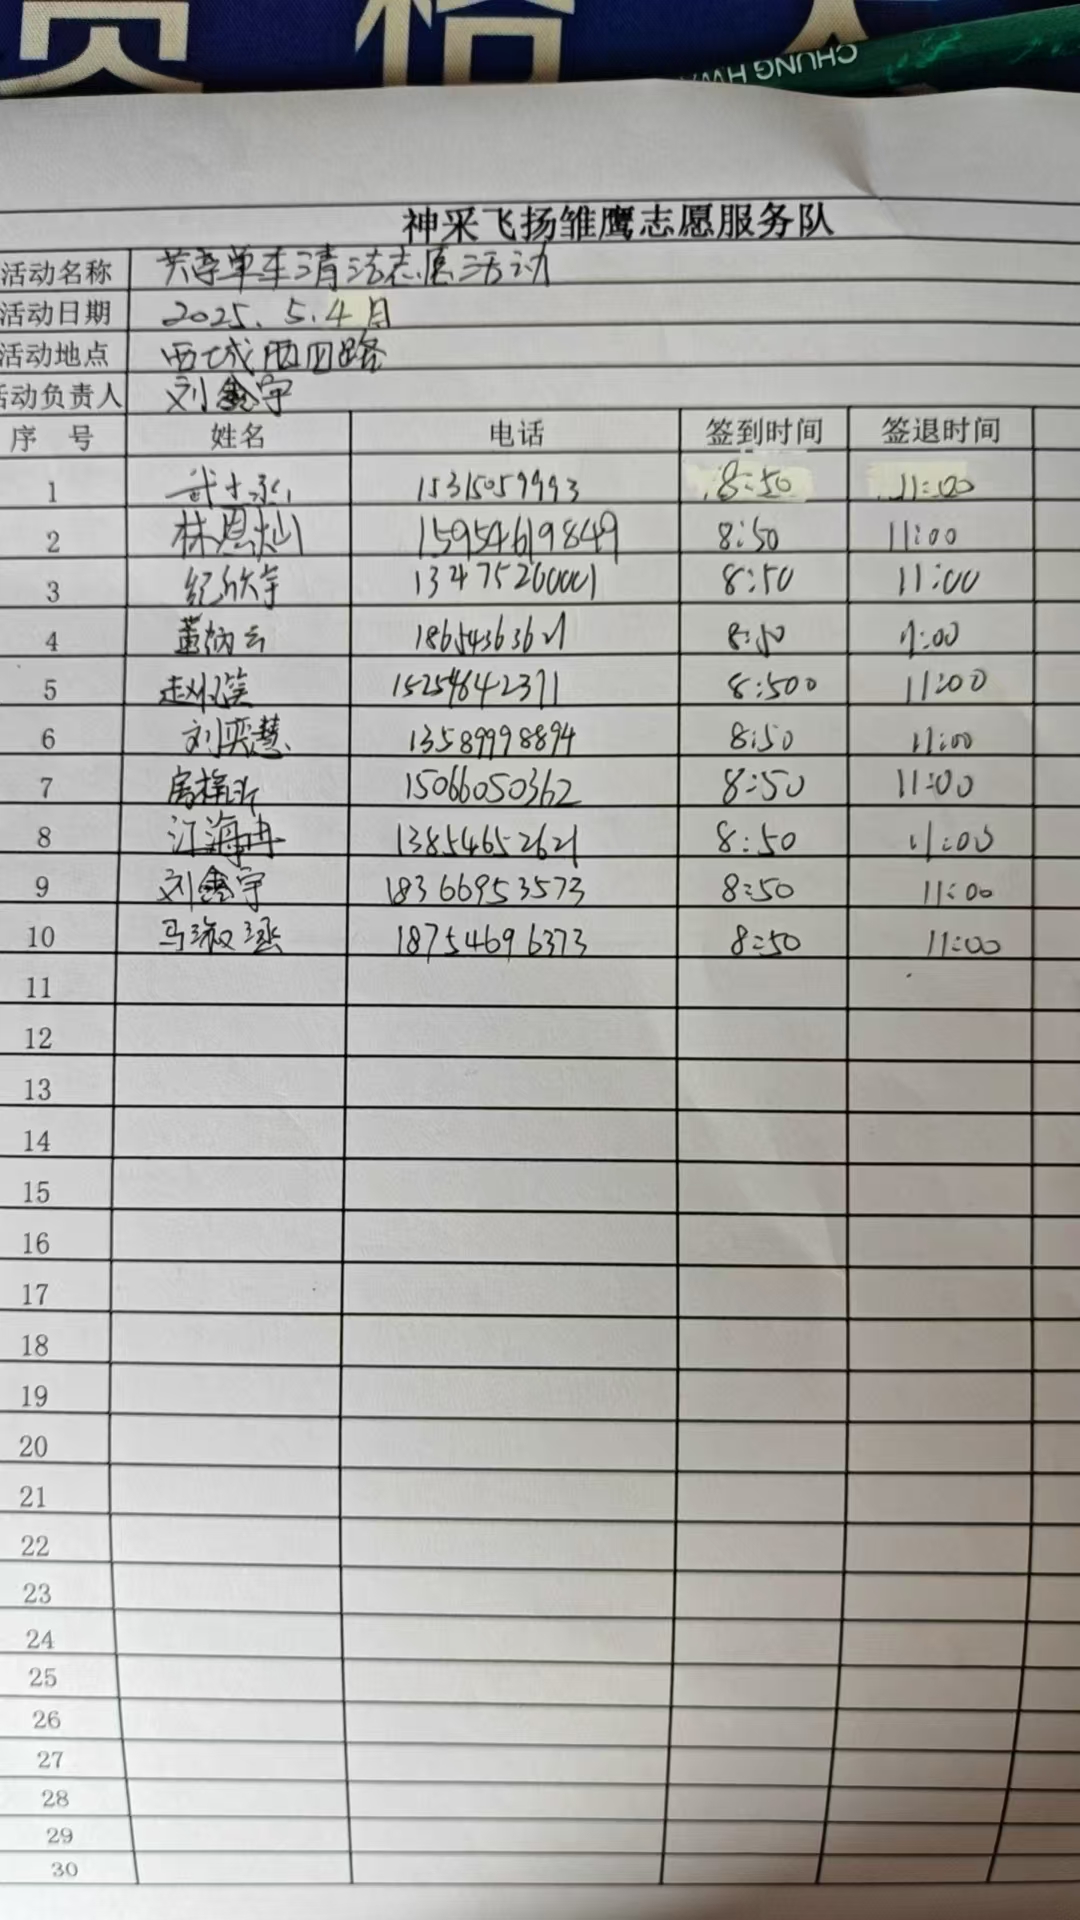 资格人
CHUNG HWA
神采飞扬雏鹰志愿服务队
活动名称 共享单车清洁志愿活动
活动日期 2025.5.4日
活动地点 西城西四路
活动负责人 刘鑫宇
序号 姓名 电话 签到时间 签退时间
1 15315059993 8:50 11:00
2 林恩灿 15954619849 8:50 11:00
3 纪欣宇 13475260001 8:50 11:00
4 18654363621 8:50 11:00
5 15254642371 8:500 11:00
6 刘奕慧 13589998894 8:50 11:00
7 15066050362 8:50 11:00
8 江海冉 13854652621 8:50 11:00
9 刘鑫宇 18366953573 8:50 11:00
10 马淑涵 18754696373 8:50 11:00
11
12
13
14
15
16
17
18
19
20
21
22
23
24
25
26
27
28
29
30